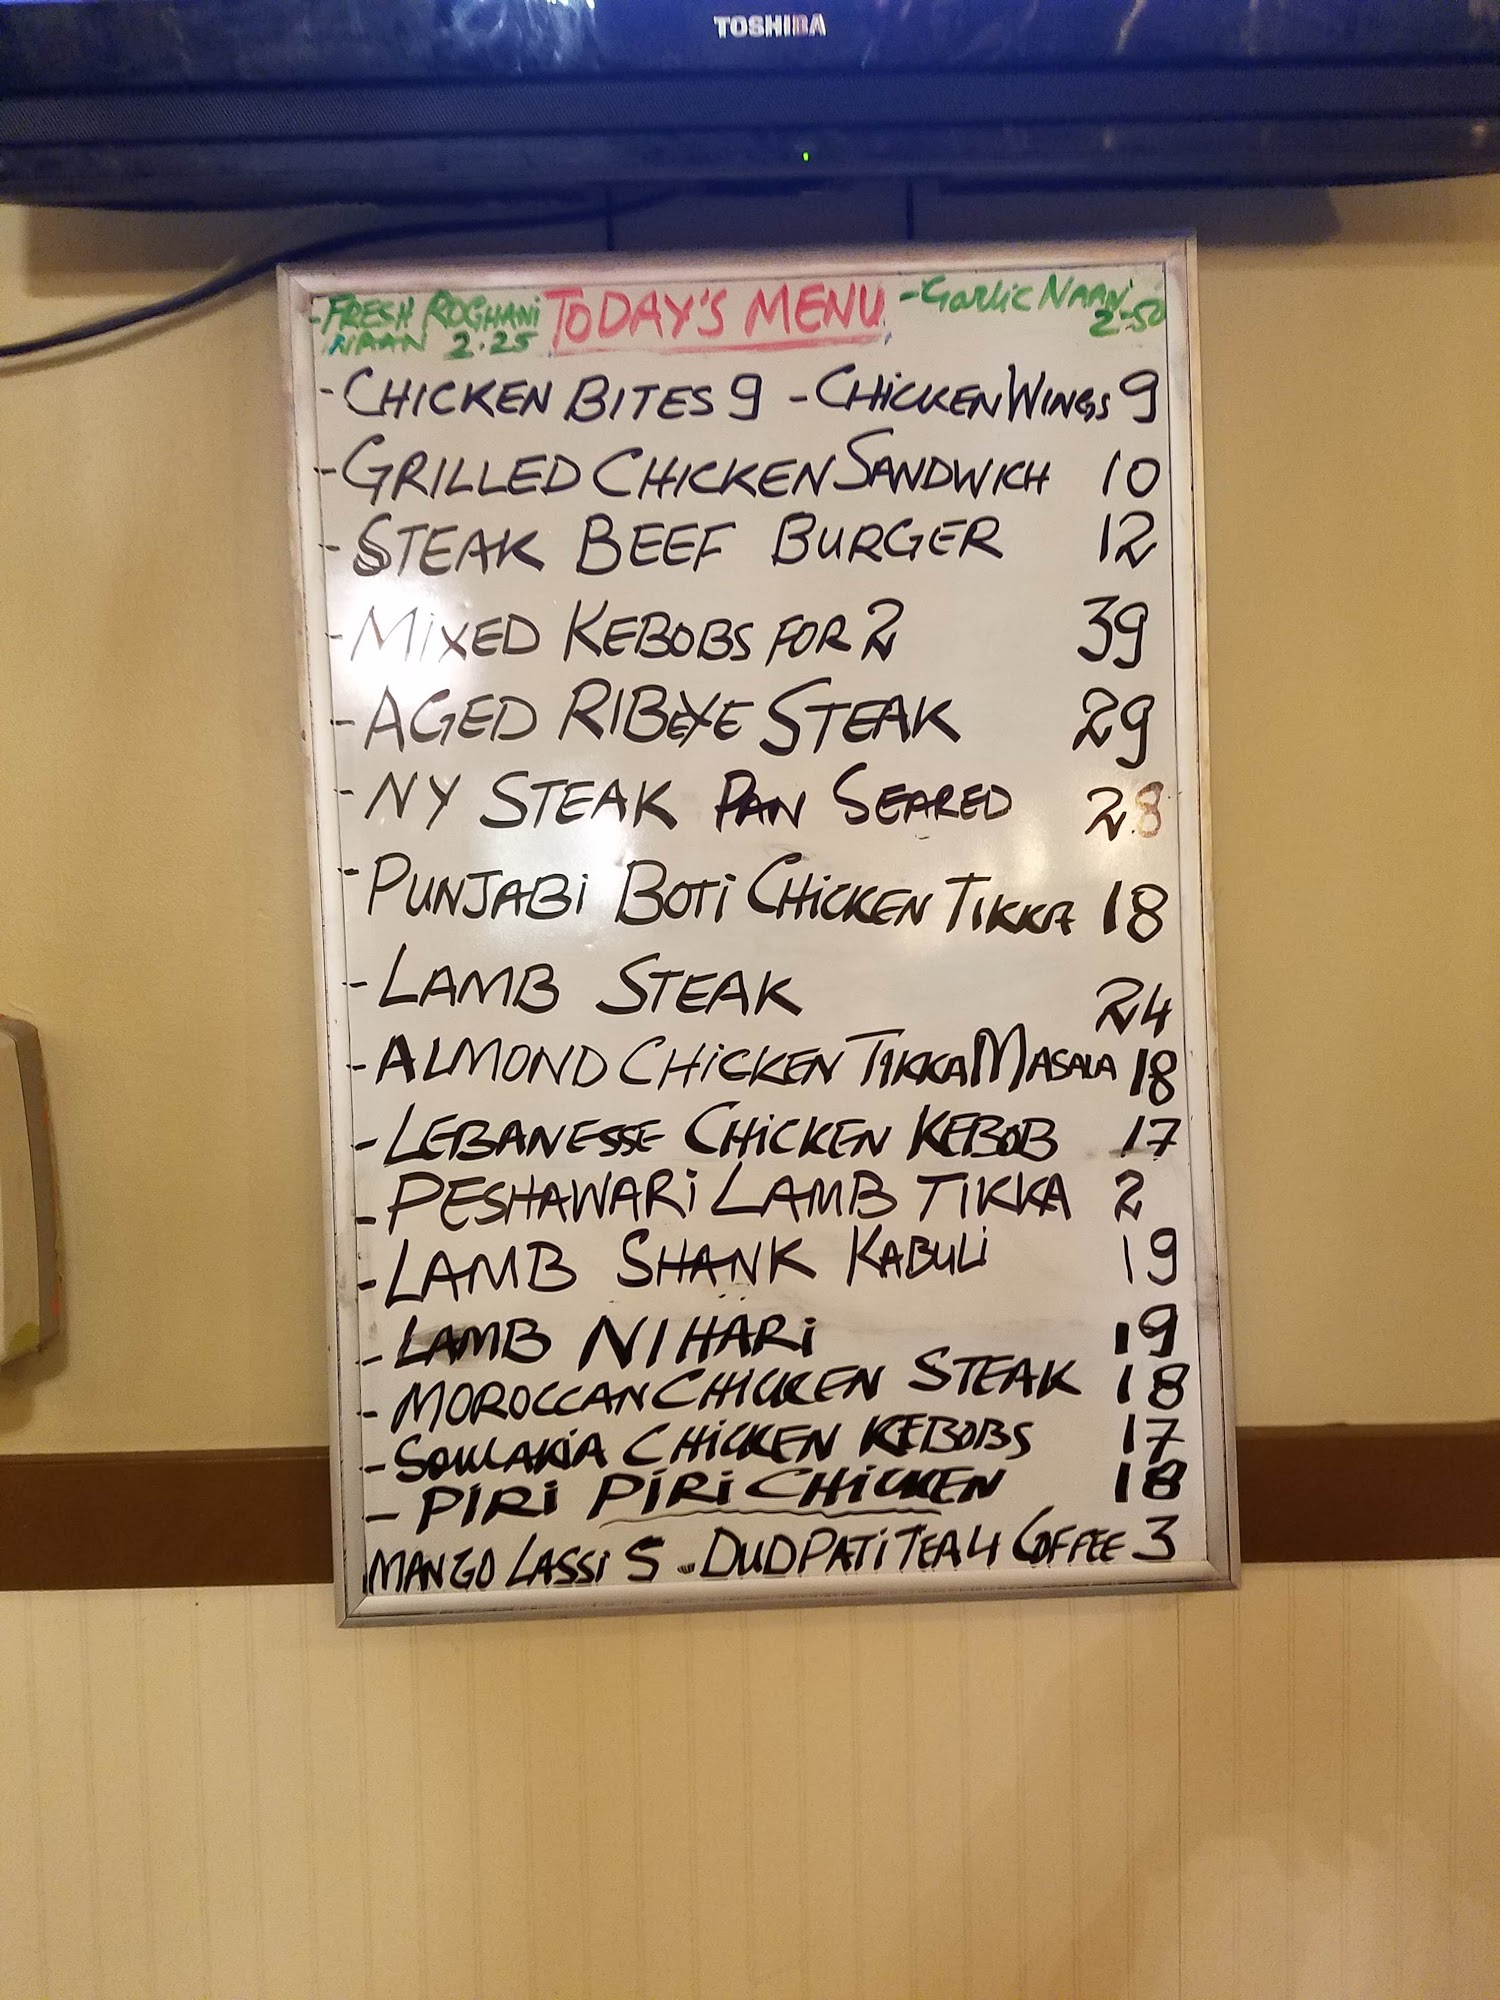 TOSHIBA
- FRESH ROGHANI NAAN 2.25
TODAY'S MENU
- Garlic NAAN 2-50
- CHICKEN BITES 9 - CHICKEN WINGS 9
- GRILLED CHICKEN SANDWICH 10
- STEAK BEEF BURGER 12
- MIXED KEBOBS FOR 2 39
- AGED RIBEYE STEAK 29
- NY STEAK PAN SEARED 28
- PUNJABI BOTI CHICKEN TIKKA 18
- LAMB STEAK 24
- ALMOND CHICKEN TIKKA MASALA 18
- LEBANESSE CHICKEN KEBOB 17
- PESHAWARI LAMB TIKKA 2
- LAMB SHANK KABULI 19
- LAMB NIHARI 19
- MOROCCAN CHICKEN STEAK 18
- SOULAKIA CHICKEN KEBOBS 17
- PIRI PIRI CHICKEN 18
MANGO LASSI 5 - DUDPATI TEA 4 COFFEE 3